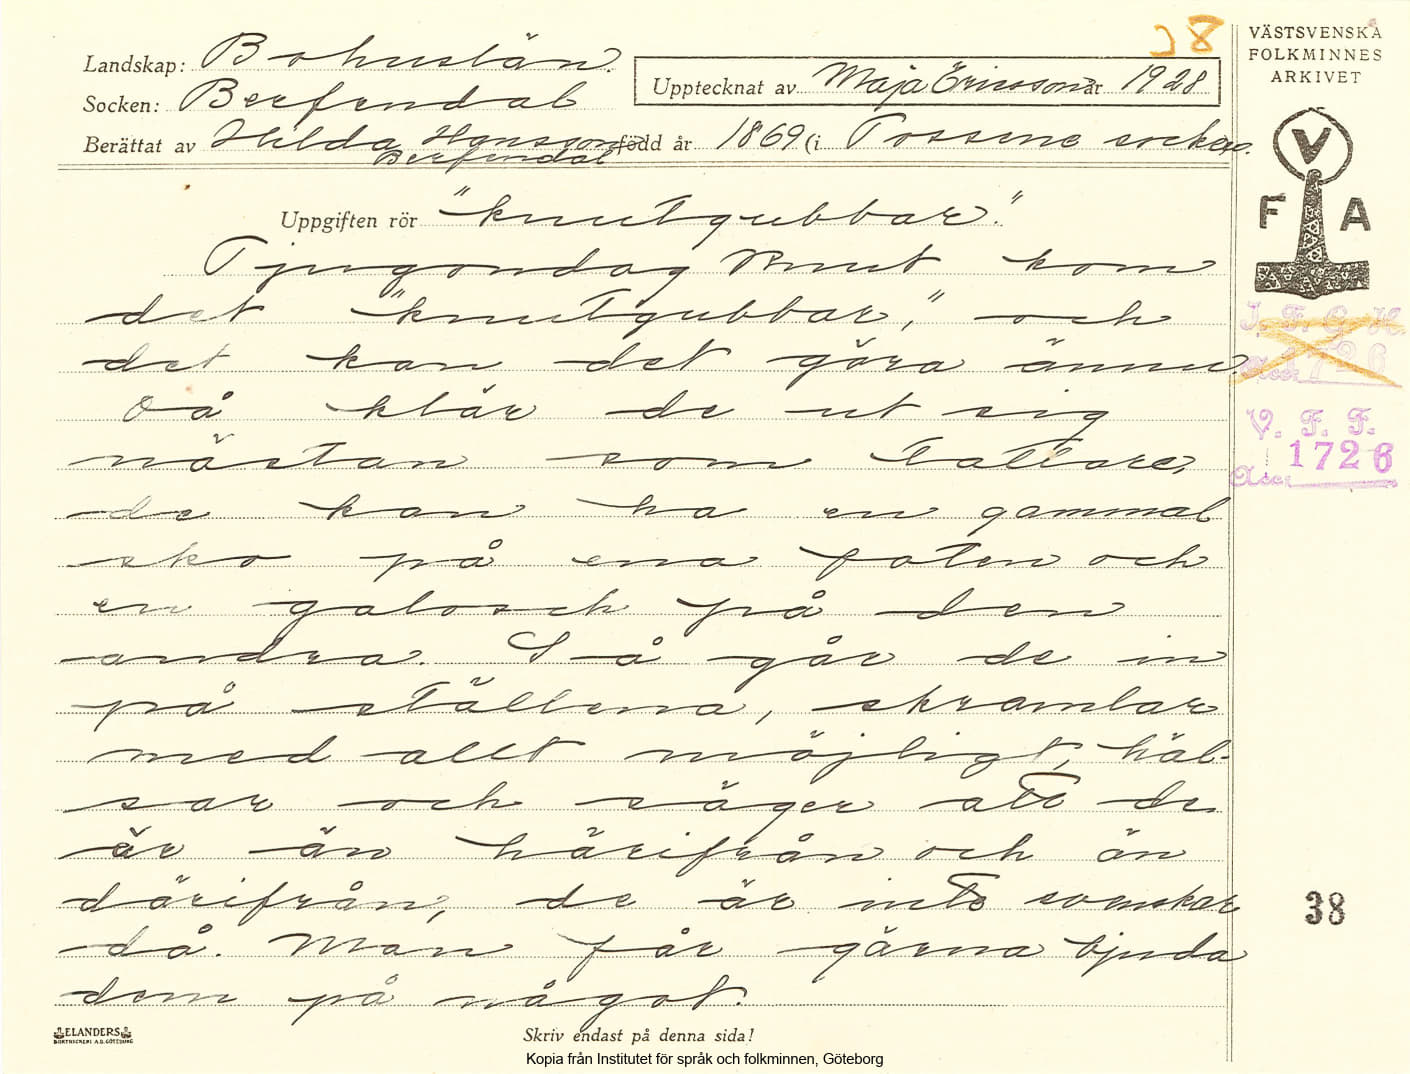 28
VÄSTSVENSKA
FOLKMINNES
ARKIVET
Landskap: Bohuslän.
Upptecknat av Maja Ericsson år 1928
Socken: Berfendal
Berättat av Hilda Hansson född år 1869 (i Tossene socken.
Berfendal
V
F A
Uppgiften rör "knutgubbar."
Tjugondag Knut kom
det "knutgubbar," och
det kan det göra ännu.
Då klär de ut sig
nästan som tattare,
de kan ha en gammal
sko på ena foten och
en galosch på den
andra. Så går de in
på ställena, skramlar
med allt möjligt, häl-
sar och säger att de
är än härifrån och än
därifrån, de är inte svenskar
då. Man får gärna bjuda
dem på något.
I. F. G. H.
Acc. 1726
V. F. F.
1726
Acc.
38
ELANDERS
BOKTRYCKERI A.B. GÖTEBORG
Skriv endast på denna sida!
Kopia från Institutet för språk och folkminnen, Göteborg